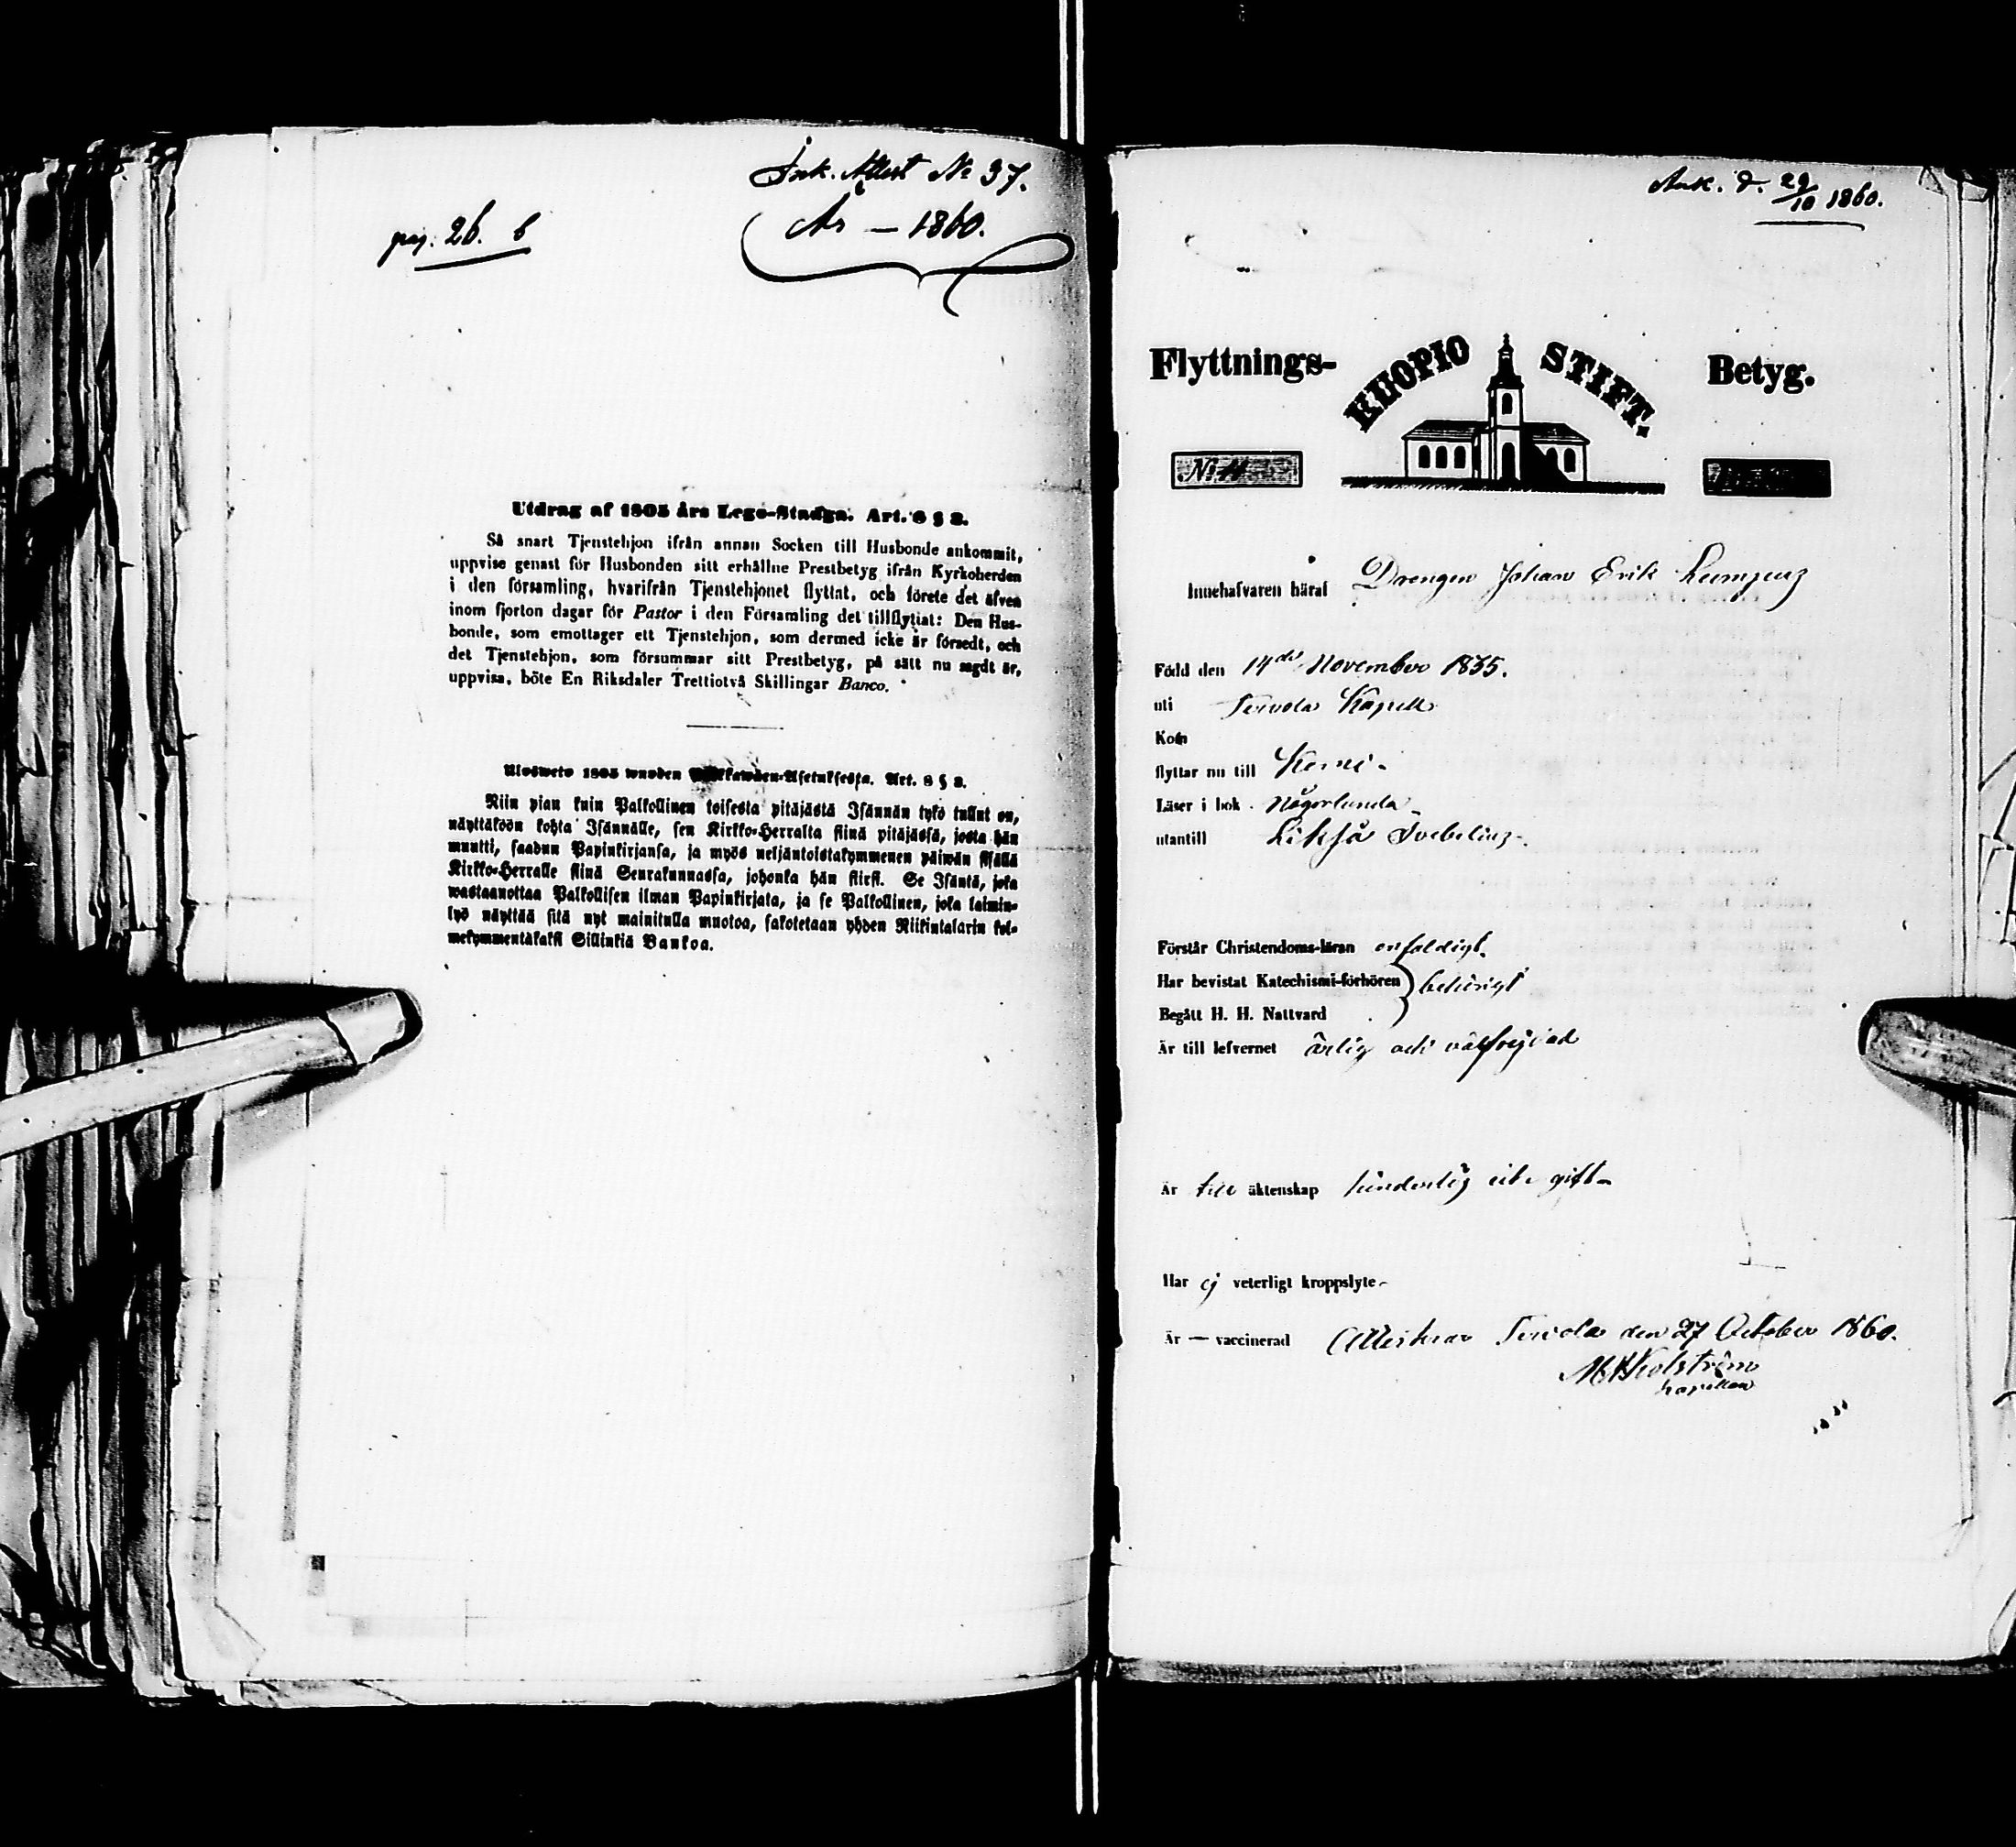 Ink. Attest № 37.
År — 1860.
pag. 26. b
Utdrag af 1805 års Lego-Stadga. Art. 8 § 2.
Så snart Tjenstehjon ifrån annan Socken till Husbonde ankommit,
uppvise genast för Husbonden sitt erhållne Prestbetyg ifrån Kyrkoherden
i den församling, hvarifrån Tjenstehjonet flyttat, och förete det äfven
inom fjorton dagar för Pastor i den Församling det tillflyttat: Den Hus-
bonde, som emottager ett Tjenstehjon, som dermed icke är försedt, och
det Tjenstehjon, som försummar sitt Prestbetyg, på sätt nu sagdt är,
uppvisa, böte En Riksdaler Trettiotvå Skillingar Banco.
Ulosweto 1805 wuoden Palkkawäen-Asetuksesta. Art. 8 § 2.
Niin pian kuin Palkollinen toisesta pitäjästä Isännän tykö tullut on,
näyttäköön kohta Isännälle, sen Kirkko-Herralta siinä pitäjässä, josta hän
muutti, saadun Papinkirjansa, ja myös neljäntoistakymmenen päiwän sisällä
Kirkko-Herralle siinä Seurakunnassa, johonka hän siirsi. Se Isäntä, joka
wastaanottaa Palkollisen ilman Papinkirjata, ja se Palkollinen, joka laimin-
lyö näyttää sitä nyt mainitulla muotoa, sakotetaan yhden Riikintalarin kol-
mekymmentäkaksi Sillinkiä Bankoa.
Ank. d. 29/10 1860.
Flyttnings- KUOPIO STIFT. Betyg.
N:
Innehafvaren häraf Drengen Johan Erik
Född den 14de November 1835.
uti Tervola Kapell
Kom
flyttar nu till Kemi.
Läser i bok någorlunda
utantill Likså Svebelius.
Förstår Christendoms-läran enfaldigt.
Har bevistat Katechismi-förhören } behörigt
Begått H. H. Nattvard
Är till lefvernet ärlig och välfrejdad
Är till äktenskap hinderlös gift.
Har ej veterligt kroppslyte.
Är — vaccinerad Attesterar Tervola den 27 October 1860.
Kapellan